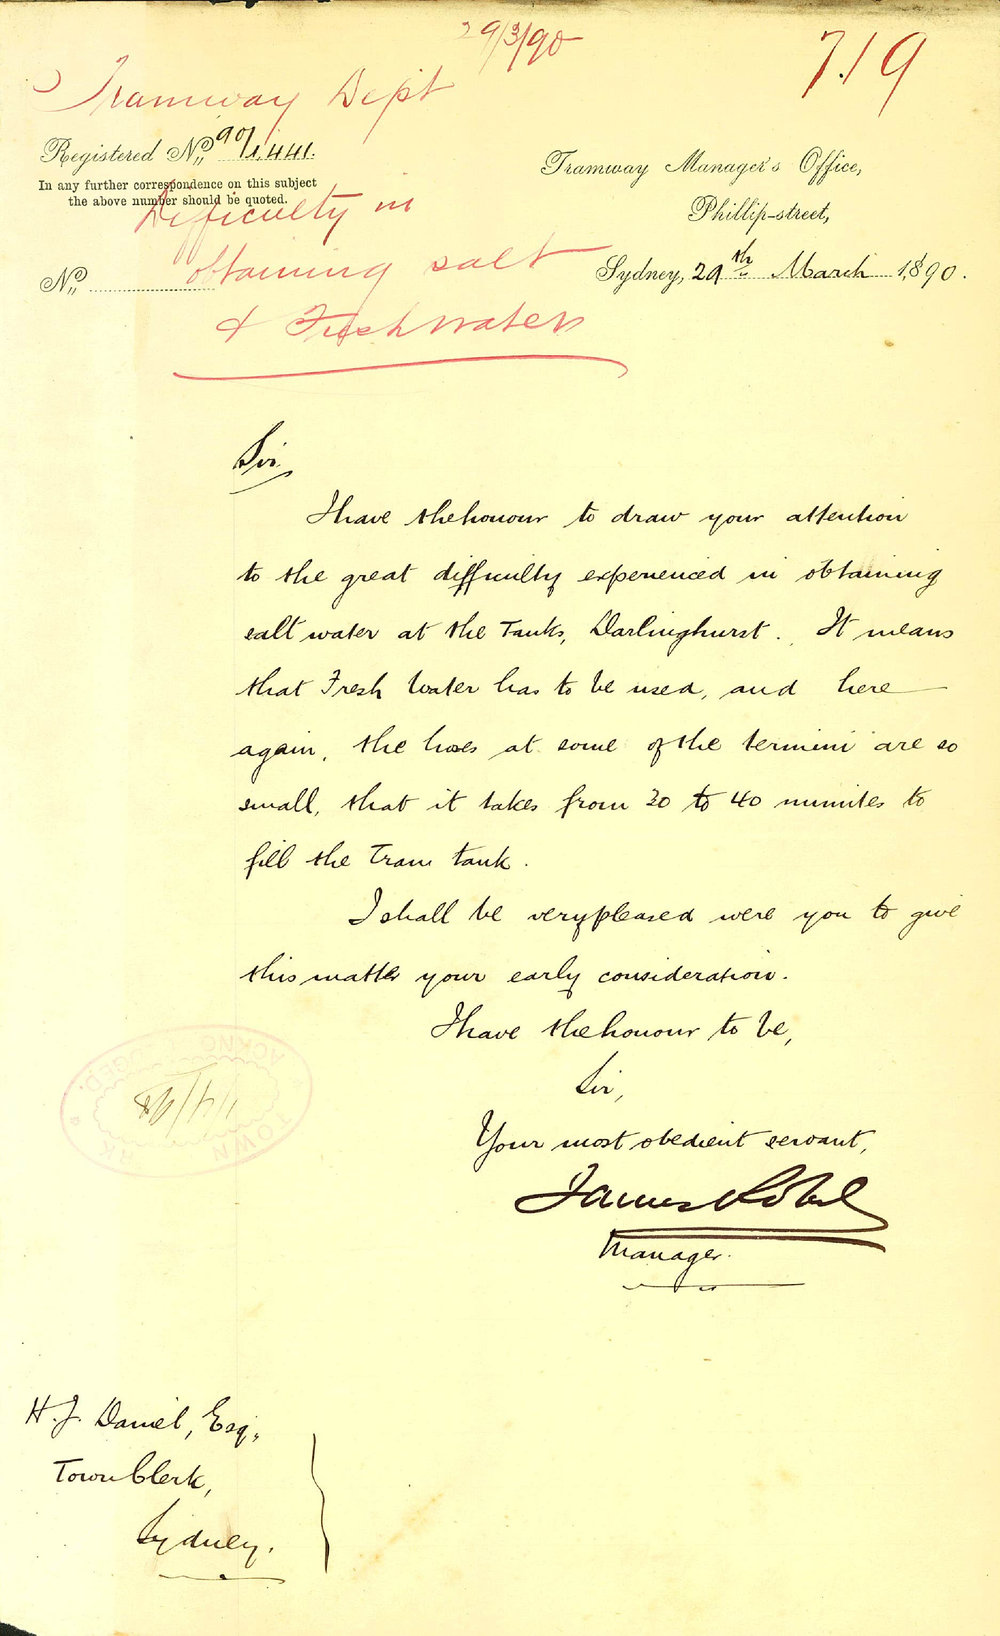 29/3/90
719
Tramway Dept
Registered No. 90/1,441.
In any further correspondence on this subject
the above number should be quoted.
Difficulty in
obtaining salt
& Fresh water
No.
Tramway Manager's Office,
Phillip-street,
Sydney, 29th March 1890.
Sir,
I have the honour to draw your attention
to the great difficulty experienced in obtaining
salt water at the Tanks, Darlinghurst. It means
that Fresh Water has to be used, and here
again, the hoses at some of the termini are so
small, that it takes from 30 to 40 minutes to
fill the Tram tank.
I shall be very pleased were you to give
this matter your early consideration.
I have the honour to be,
Sir,
Your most obedient servant,
James
Manager.
ACKNOWLEDGED.
TOWN CLERK
H. J. Daniel, Esq.,
Town Clerk,
Sydney.